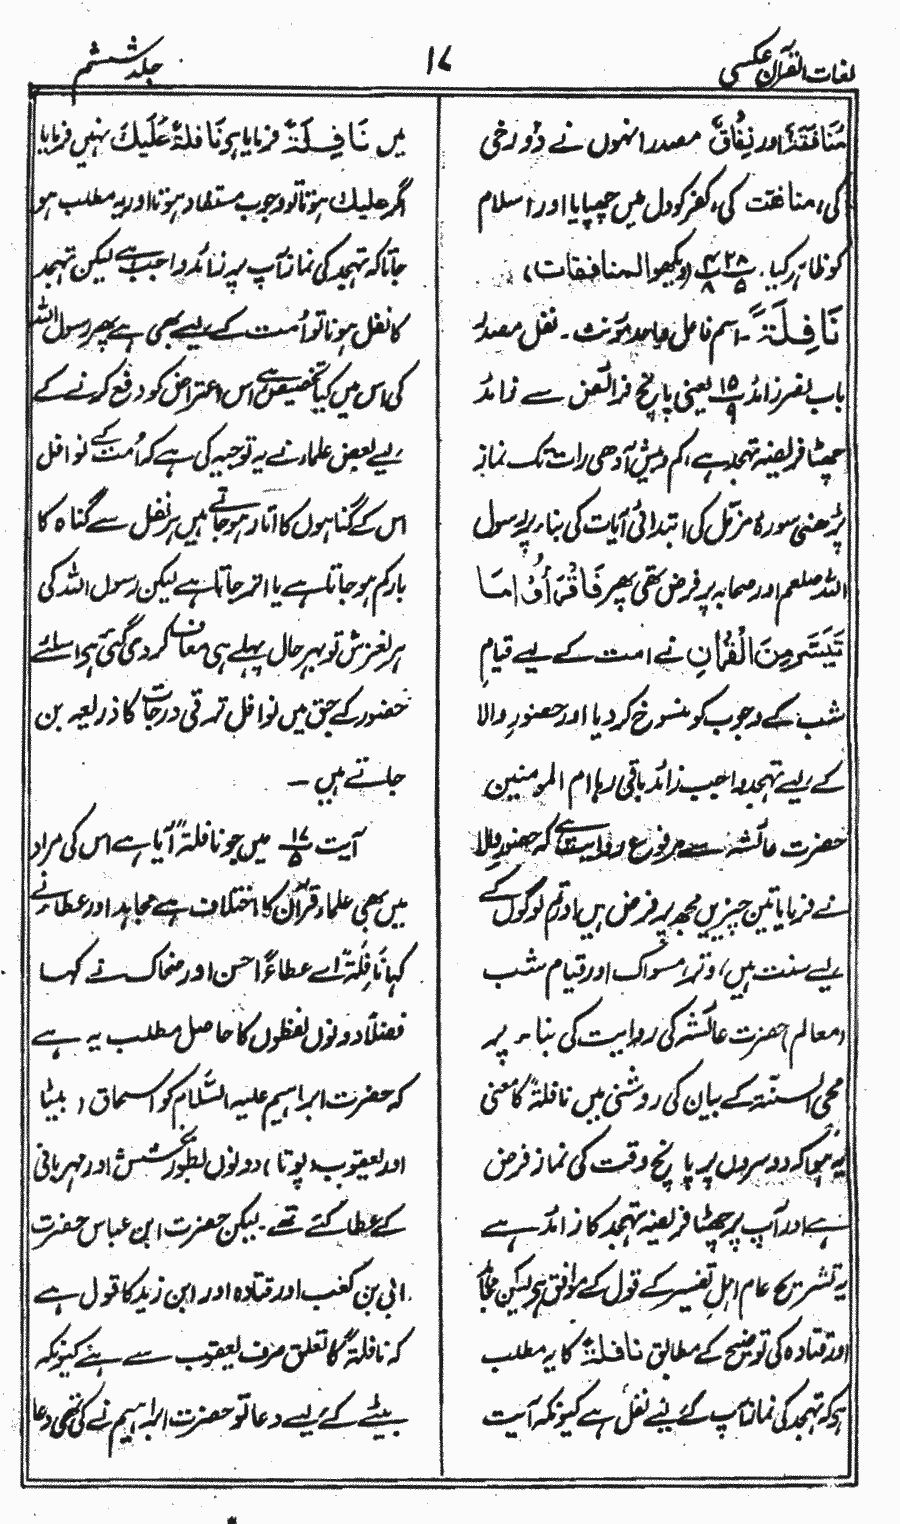 لغات القرآن عکسی
۱۷
جلد ششم
مُنَافَقَۃً اور نِفَاقٌ مصدر انہوں نے دُو رخی
کی، منافقت کی، کفر کو دل میں چھپایا اور اسلام
کو ظاہر کیا۔ ۲۸/۵ ۴/۸ (دیکھو المنافقات)،
نَافِلَۃً ۔ اسم فاعل واحد مؤنث۔ نفل مصدر
باب نصر زائد ۱۵/۹ یعنی پانچ فرائض سے زائد
چھٹا فریضہ تہجد ہے کم و بیش آدھی رات تک نماز
پڑھنی سورۂ مزمّل کی ابتدائی آیات کی بناء پر رسول
اللہ صلعم اور صحابہ پر فرض تھی پھر فَاقْرَءُوْا مَا
تَیَسَّرَ مِنَ الْقُرْاٰنِ نے امت کے لیے قیام
شب کے وجوب کو منسوخ کر دیا اور حضور والا
کے لیے تہجد واجب زائد باقی رہا ام المومنین
حضرت عائشہ سے مرفوع روایت ہے کہ حضور والا
نے فرمایا تین چیزیں مجھ پر فرض ہیں اور تم لوگوں کے
لیے سنت ہیں، وتر، مسواک اور قیام شب
(معالم) حضرت عائشہ کی روایت کی بناء پر
محی السنۃ کے بیان کی روشنی میں نافلۃً کا معنی
یہ ہوا کہ دوسروں پر پانچ وقت کی نماز فرض
ہے اور آپ پر چھٹا فریضہ تہجد کا زائد ہے
یہ تشریح عام اہل تفسیر کے قول کے موافق ہی لیکن مجاہد
اور قتادہ کی توضیح کے مطابق نَافِلَۃً کا یہ مطلب
ہو کہ تہجد کی نماز آپ کے لیے نفل ہے کیونکہ آیت
میں نَافِلَۃً لَّکَ فرمایا ہو نَافِلَۃً عَلَیْکَ نہیں فرمایا
اگر علیک ہوتا تو وجوب مستفاد ہوتا اور یہ مطلب ہو
جاتا کہ تہجد کی نماز آپ پر زائد واجب ہے لیکن تہجد
کا نفل ہونا تو اُمت کے لیے بھی ہے پھر رسول اللہ
کی اس میں کیا تخصیص ہے اس اعتراض کو دفع کرنے کے
لیے بعض علماء نے یہ توجیہ کی ہے کہ اُمت کے نوافل
اس کے گناہوں کا اتار ہو جاتے ہیں ہر نفل سے گناہ کا
بار کم ہو جاتا ہے یا اتر جاتا ہے لیکن رسول اللہ کی
ہر لغزش تو بہر حال پہلے ہی معاف کر دی گئی ہو اسلئے
حضور کے حق میں نوافل ترقی درجات کا ذریعہ بن
جاتے ہیں ۔
آیت ۱۷/۵ میں جو نافلۃً آیا ہے اس کی مراد
میں بھی علماء قرآن کا اختلاف ہے مجاہد اور عطاء نے
کہا نَافِلَۃً اے عطاءً احسن اور ضحاک نے کہا
فضلاً دونوں لفظوں کا حاصل مطلب یہ ہے
کہ حضرت ابراہیم علیہ السَّلام کو اسحاق (بیٹا
اور یعقوب (پوتا) دونوں بطور بخشش اور مہربانی
کے عطا کئے گئے تھے۔ لیکن حضرت ابن عباس حضرت
ابی بن کعب اور قتادہ اور ابن زید کا قول ہے
کہ نافلۃً کا تعلق صرف یعقوب سے ہے کیونکہ
بیٹے کے لیے دعا تو حضرت ابراہیم نے کی تھی دعا